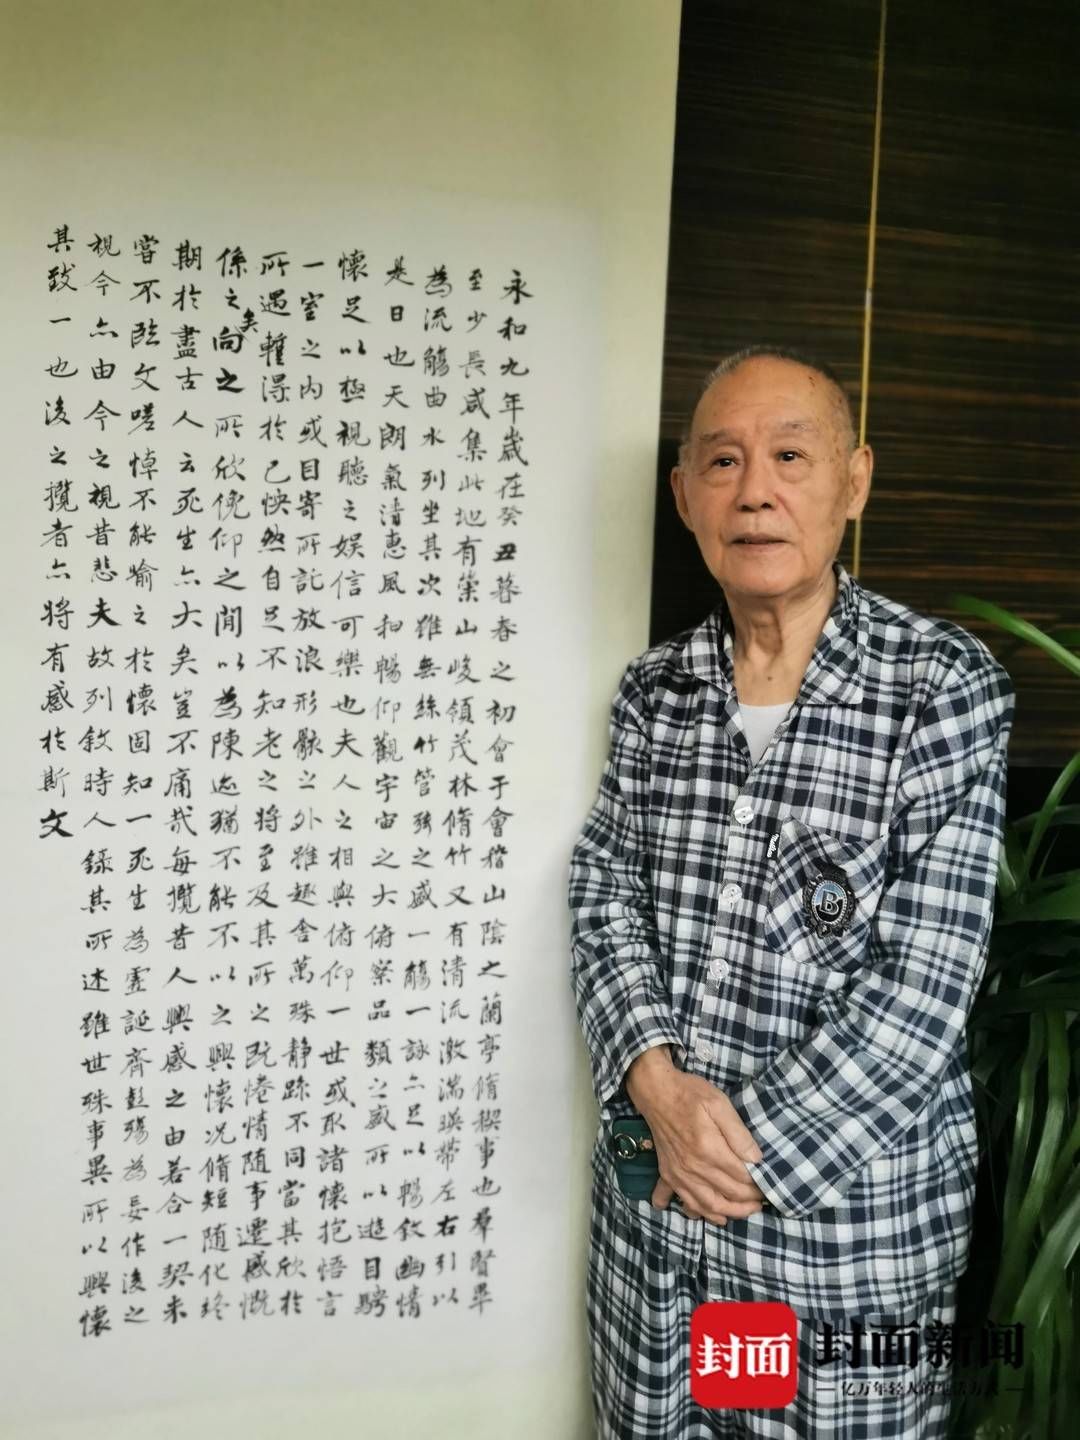 永和九年歲在癸丑暮春之初會于會稽山陰之蘭亭脩稧事也羣賢畢
至少長咸集此地有崇山峻領茂林脩竹又有清流激湍暎帶左右引以
為流觴曲水列坐其次雖無絲竹管弦之盛一觴一詠亦足以暢敘幽情
是日也天朗氣清惠風和暢仰觀宇宙之大俯察品類之盛所以遊目騁
懷足以極視聽之娛信可樂也夫人之相與俯仰一世或取諸懷抱悟言
一室之内或目寄所託放浪形骸之外雖趣舍萬殊静躁不同當其欣於
所遇暫得於己怏然自足不知老之將至及其所之既惓情隨事遷感慨
係之矣向之所欣俛仰之間以為陳迹猶不能不以之興懷况脩短随化終
期於盡古人云死生亦大矣豈不痛哉每攬昔人興感之由若合一契未
嘗不臨文嗟悼不能喻之於懷固知一死生為虛誕齊彭殤為妄作後之
視今亦由今之視昔悲夫故列敘時人録其所述雖世殊事異所以興懷
其致一也後之攬者亦將有感於斯文
B
封面
封面新闻
亿万年轻人的生活方式